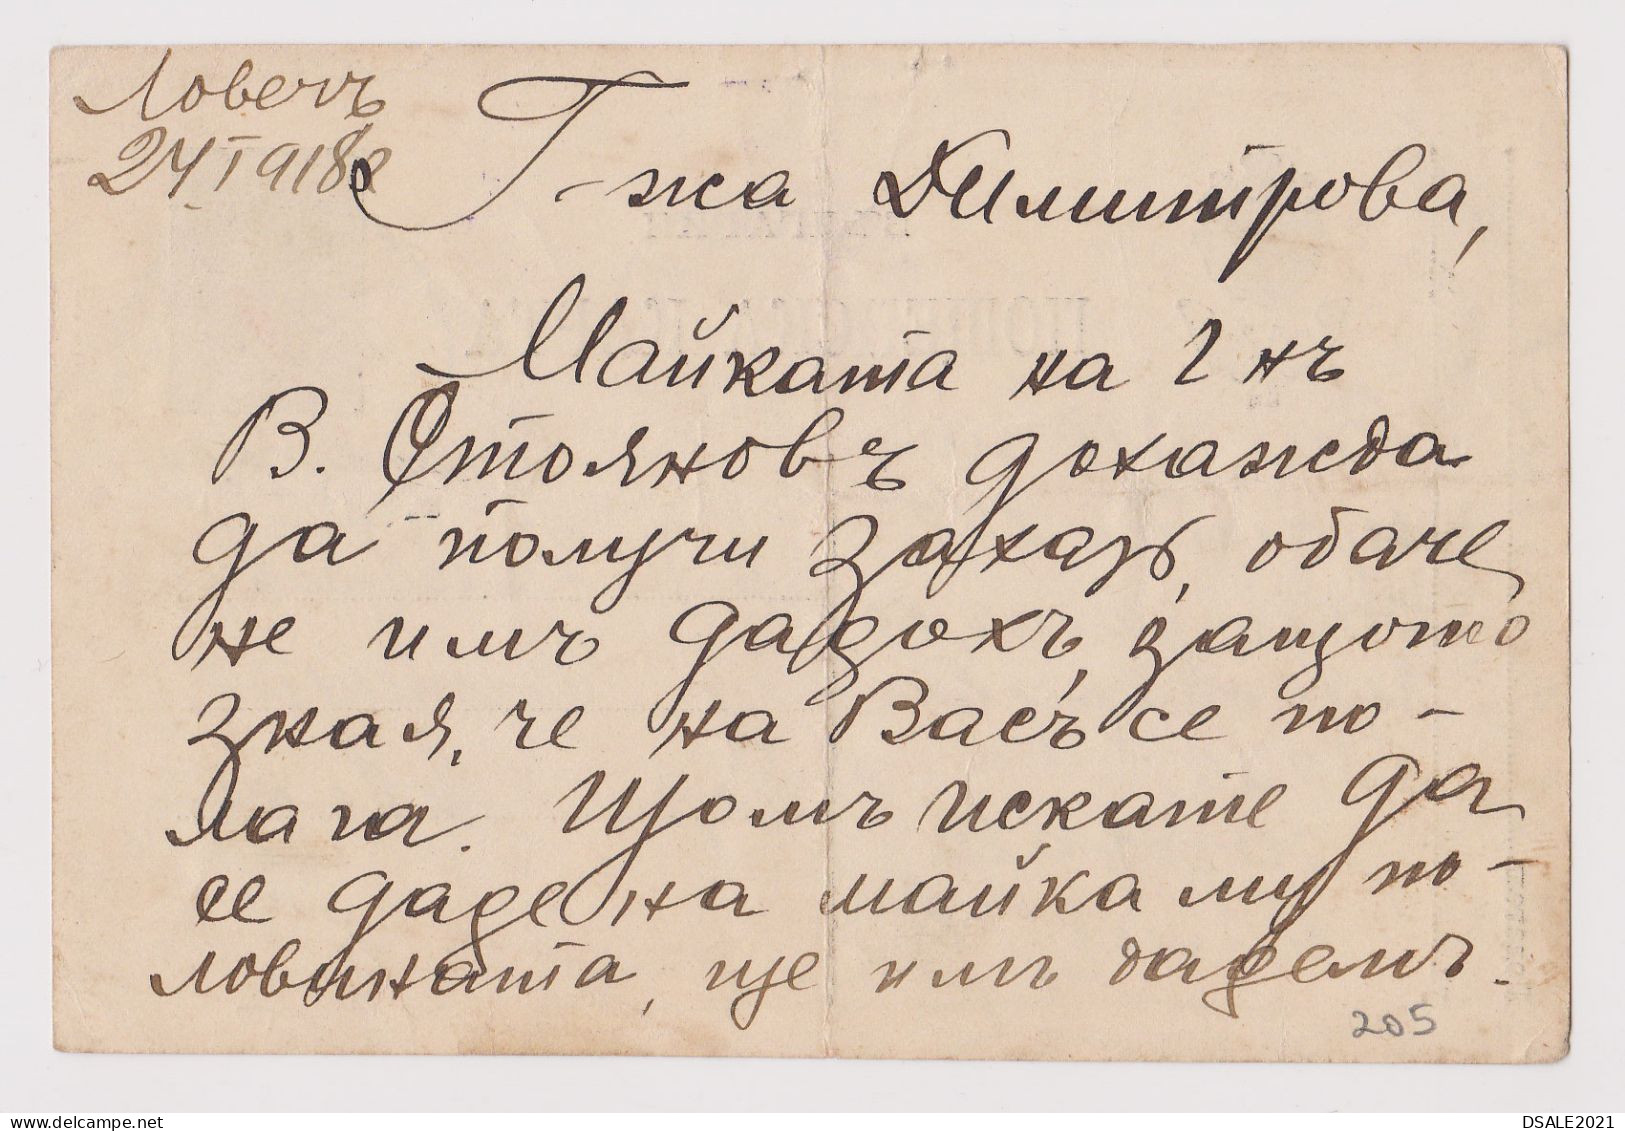 Ловечъ
24 I 918
Г-жа Димитрова,
Майката на г нъ
В. Стояновъ дохажда
да получи захарь, обаче
не имъ дадохъ, защото
зная, че на Васъ се по-
лага. Щомъ искате да
се даде на майка му по-
ловината, ще имъ дадемъ.
205
DSALE2021